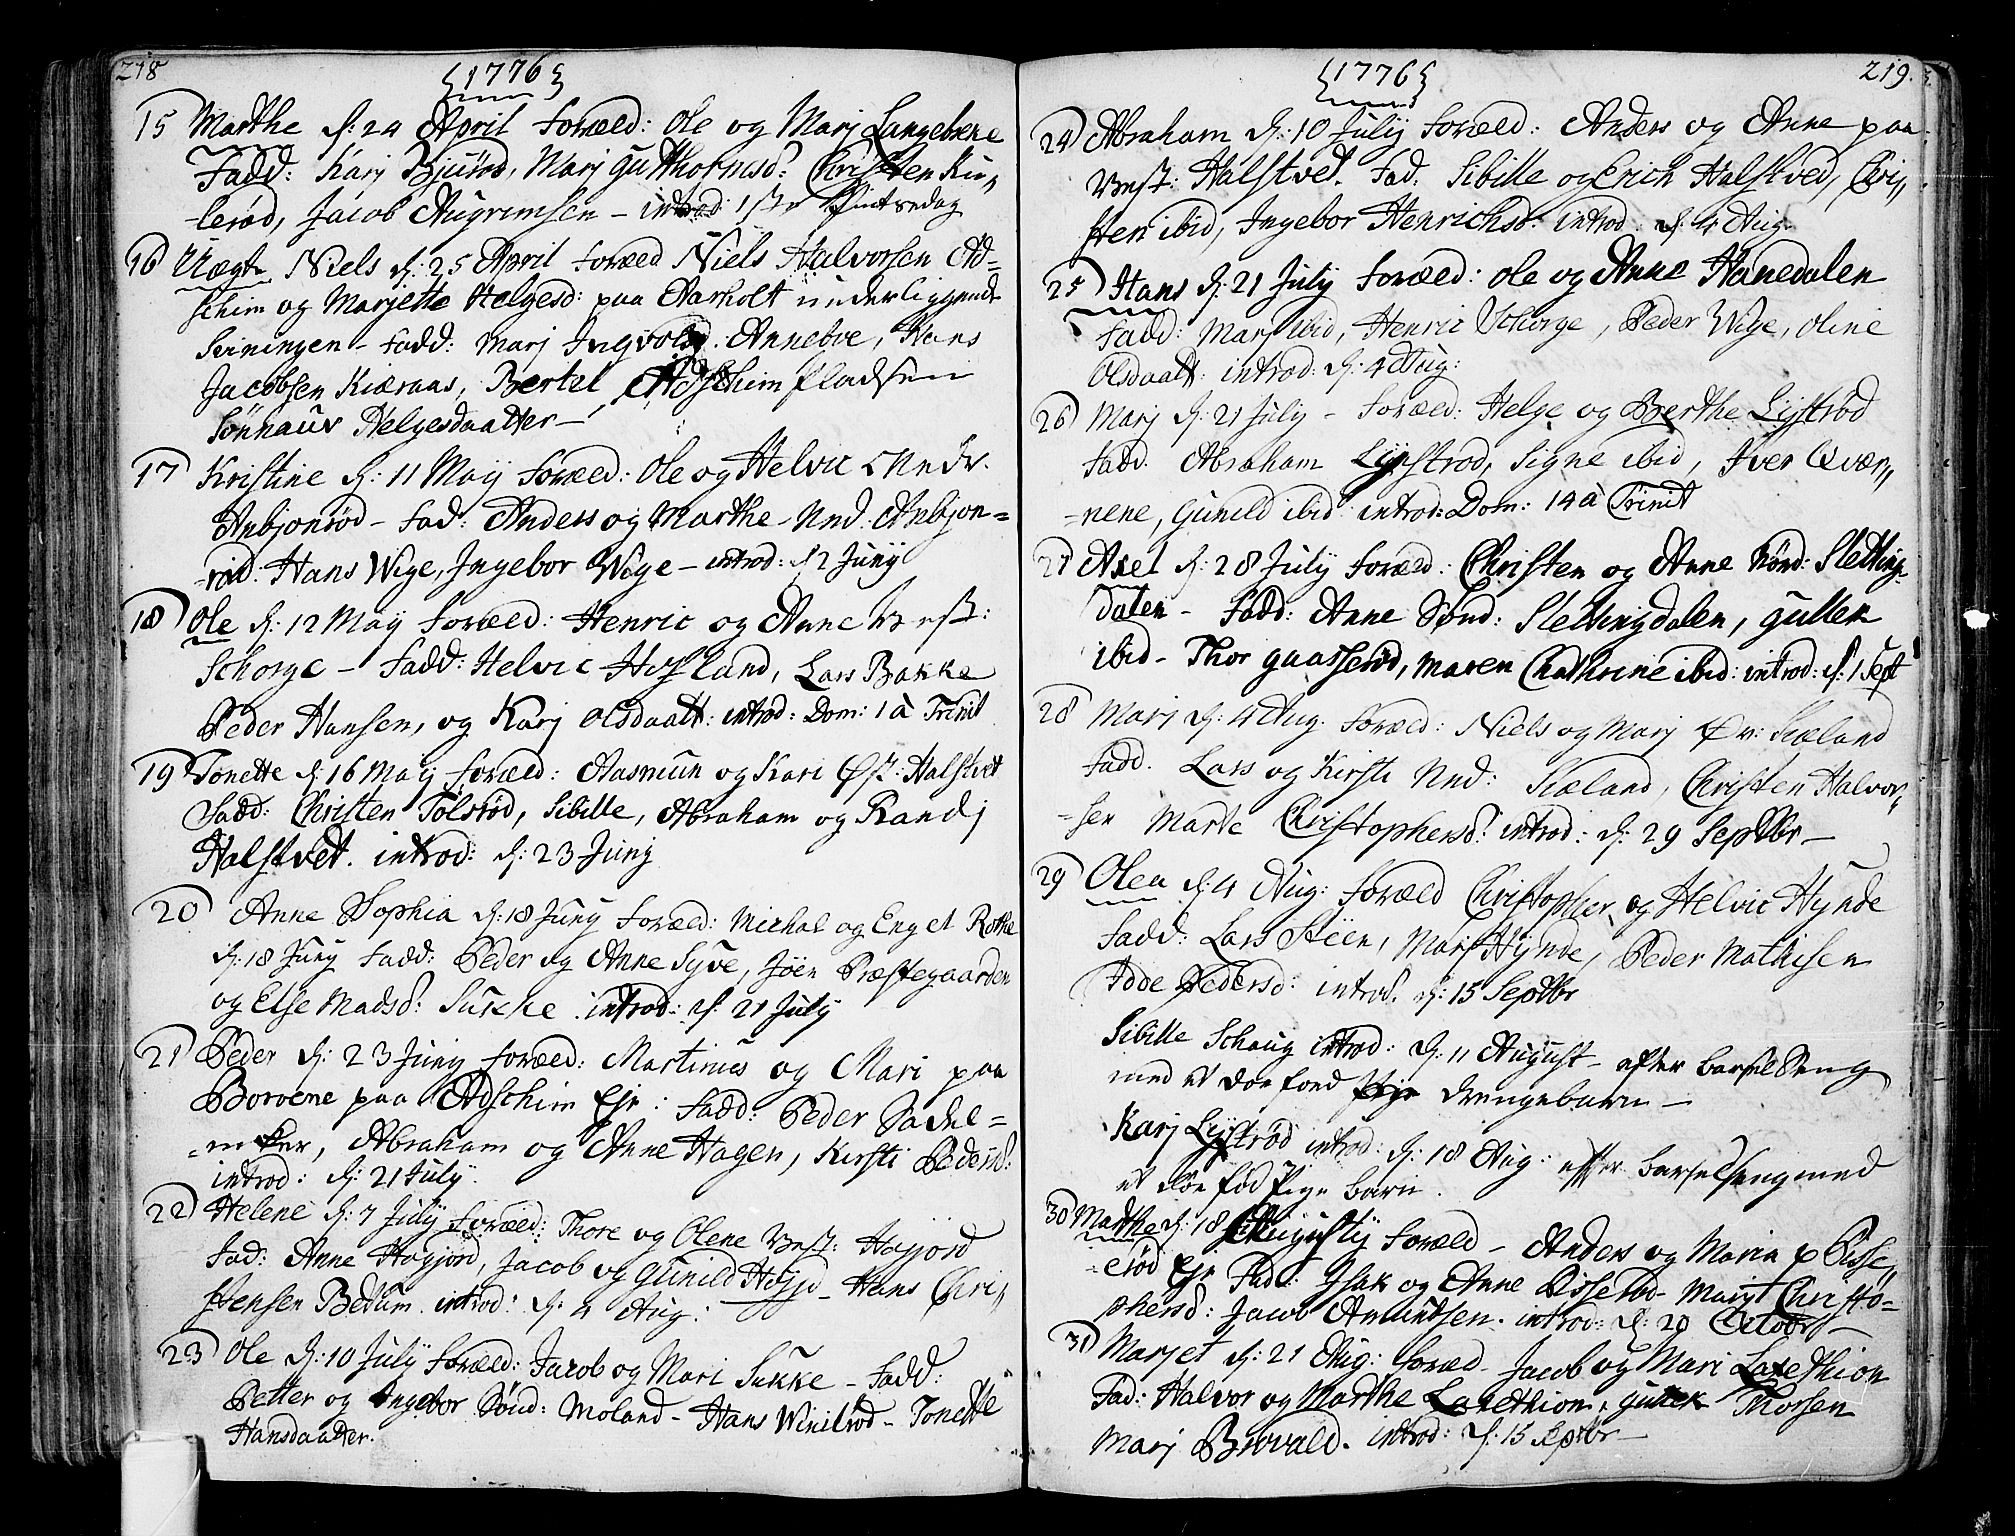 218
{1776}
15 Marthe d: 24 April Foræld: Ole og Marj Langebrene
Fadd: Karj Bjurød, Marj Gutthormsd: Christen Ru„
lerød, Jacob Augrimsen - introd: 1ste Pintsedag
16 Uægte Niels d: 25 April Foræld Niels Halvorsen Ad=
schim og Marjette Helgesd: paa Aarholt underliggende
- Fadd: Marj Ingvolsd. Annebve, Hans
Jacobsen Kiæraas, Bertel Adschim Pladsen
Sønnauv Helgesdaatter -
17 Kristine d: 11 Maij Foræld: Ole og Helvic Nedr.
Anbjonrød - Fad: Anders og Marthe Ned: Anbjon=
rød: Hans Wige, Ingebor Wige - introd: d 2 Junij
18 Ole d: 12 Maij Foræld: Henric og Anne Vest:
Schorge - Fadd: Helvic Hofland, Lars Bakke
Peder Hansen, og Karj Olsdaatt: introd: Dom: 1 à Trinit
19 Tonette d: 16 Maij Foræld: Aasmun og Kari Øst: Halstvet
Fadd: Christen Tolsrød, Sibille, Abraham og Randj
Halstvet. introd: d: 23 Junij
20 Anne Sophia d: 18 Junij Foræld: Michal og Engel Rothe
d: 18 Junij Fadd: Peder og Anne Syve, Jöen Præstegaarden
og Else Madsd: Sukke. introd: d: 21 July
21 Peder d: 23 Junij Foræld: Martinus og Mari paa
Borvene paa Adschim Eje: Fadd: Peder Sadel=
=maker, Abraham og Anne Hagen, Kirsti Pedersd:
introd: d: 21 July.
22 Helene d: 7 Julij Foræld: Thore og Olene Vest: Hagjord
Fad: Anne Hagjord, Jacob og Gunild Hagjd - Hans Chri„
stensen Bedum. introd: d: 4 Aug:
23 Ole d: 10 Julij Foræld: Jacob og Mari Sukke - Fadd:
Petter og Ingebor Sönd: Moland - Hans Winilrød - Tonette
Hansdaatter.
{1776} 219.
24 Abraham d: 10 Julij Foræld: Anders og Anne paa
Vest: Halstvet. Fad: Sibille og Erich Halstved, Chri„
sten ibid, Ingebor Henrichsd: introd d: 4 Aug.
25 Hans d: 21 July Foræld: Ole og Anne Hanedalen
Fadd: Marj ibid, Henric Schorge, Peder Wige, Oline
Olsdaatt: introd: d: 4 Aug:
26 Marj d: 21 July - Foræld: Helge og Berthe Lijstrød
Fadd. Abraham Lijstrød, Signe ibid, Iver Qvær„
=nene, Gunild ibid introd: Dom: 14 à Trinit
27 Axel d: 28 Julij Foræld: Christen og Anne Nörd: Sletting
dalen - Fadd: Anne Sönd: Slettingdalen, Gullek
ibid - Thor Gaasserød, Maren Chathrine ibid: introd: d: 1 Sept
28 Marj d: 4 Aug. Foræld: Niels og Marj Øv: Sæland
Fadd. Lars og Kirsti Ned: Sæland, Christen Halvor„
=sen Marte Christophersd: introd: d: 29 Septbr -
29 Olea d: 4 Aug: Foræld Christopher og Helvic Hynde
Fadd: Lars Steen, Marj Hynde, Peder Mathisen
Idde Pedersd: introd. d: 15 Septbr
Sibille Schaug introd: d: 11 August - efter barselseng
med et döefoed drengebarn -
Karj Lijstrød introd: d: 18 Aug: efter barselseng med
et döefød Pige barn.
30 Marthe d: 18 Augustij Foræld - Anders og Maria p Pisse„
=rød Eje Fad: Isak og Anne Pisserød - Marjt Christo=
phersd: Jacob Amundsen. introd: d: 20 Octobr -
31 Marjet d: 21 Aug: Foræd - Jacob og Mari Laxethion
Fad: Halvor og Marthe Laxethion, Gullek Thorsen
Marj Brovald. introd: d: 15 Septbr -